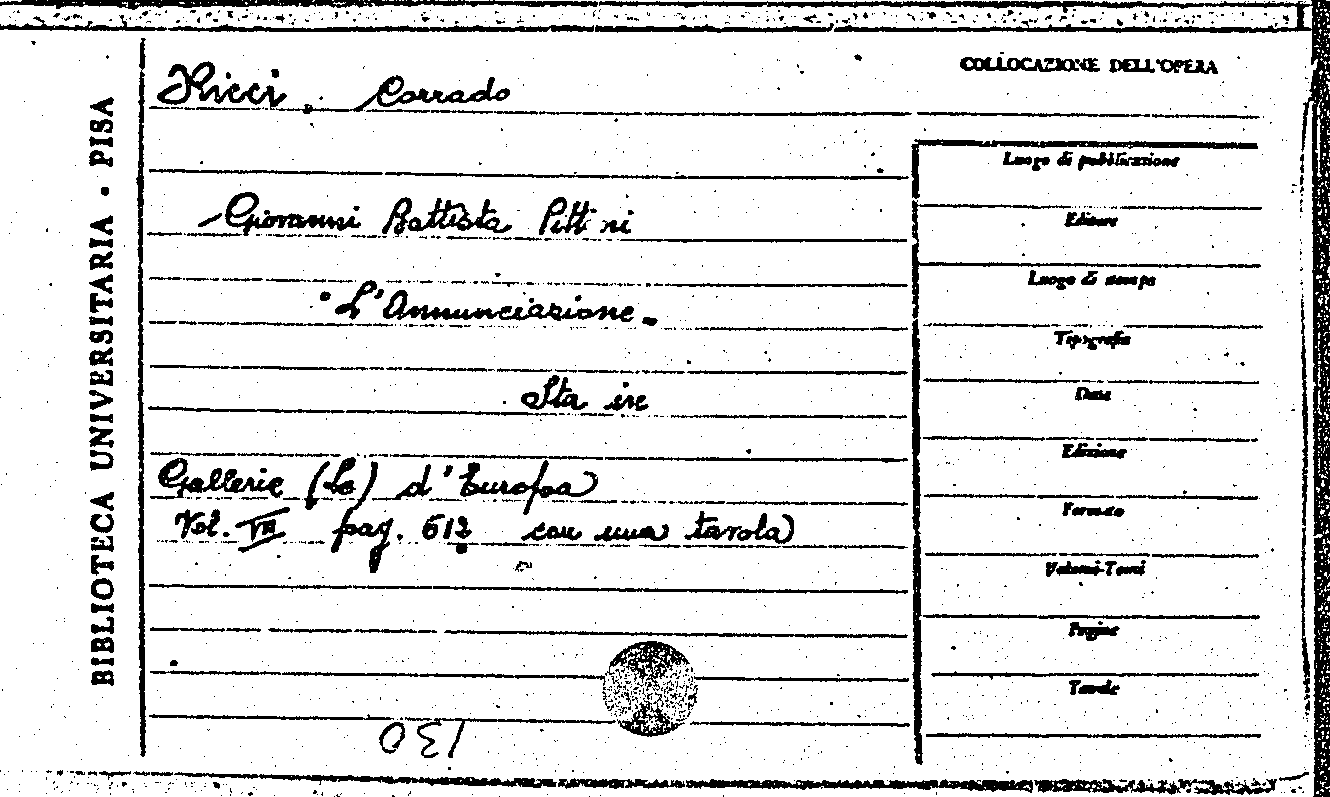 BIBLIOTECA UNIVERSITARIA · PISA
COLLOCAZIONE DELL'OPERA
Ricci, Corrado
Giovanni Battista Pittoni
"L'Annunciazione"
Sta in
Gallerie (Le) d'Europa
Vol. VII pag. 612 con una tavola
130
Luogo di pubblicazione
Editore
Luogo di stampa
Tipografia
Data
Edizione
Formato
Volumi-Tomi
Pagine
Tavole